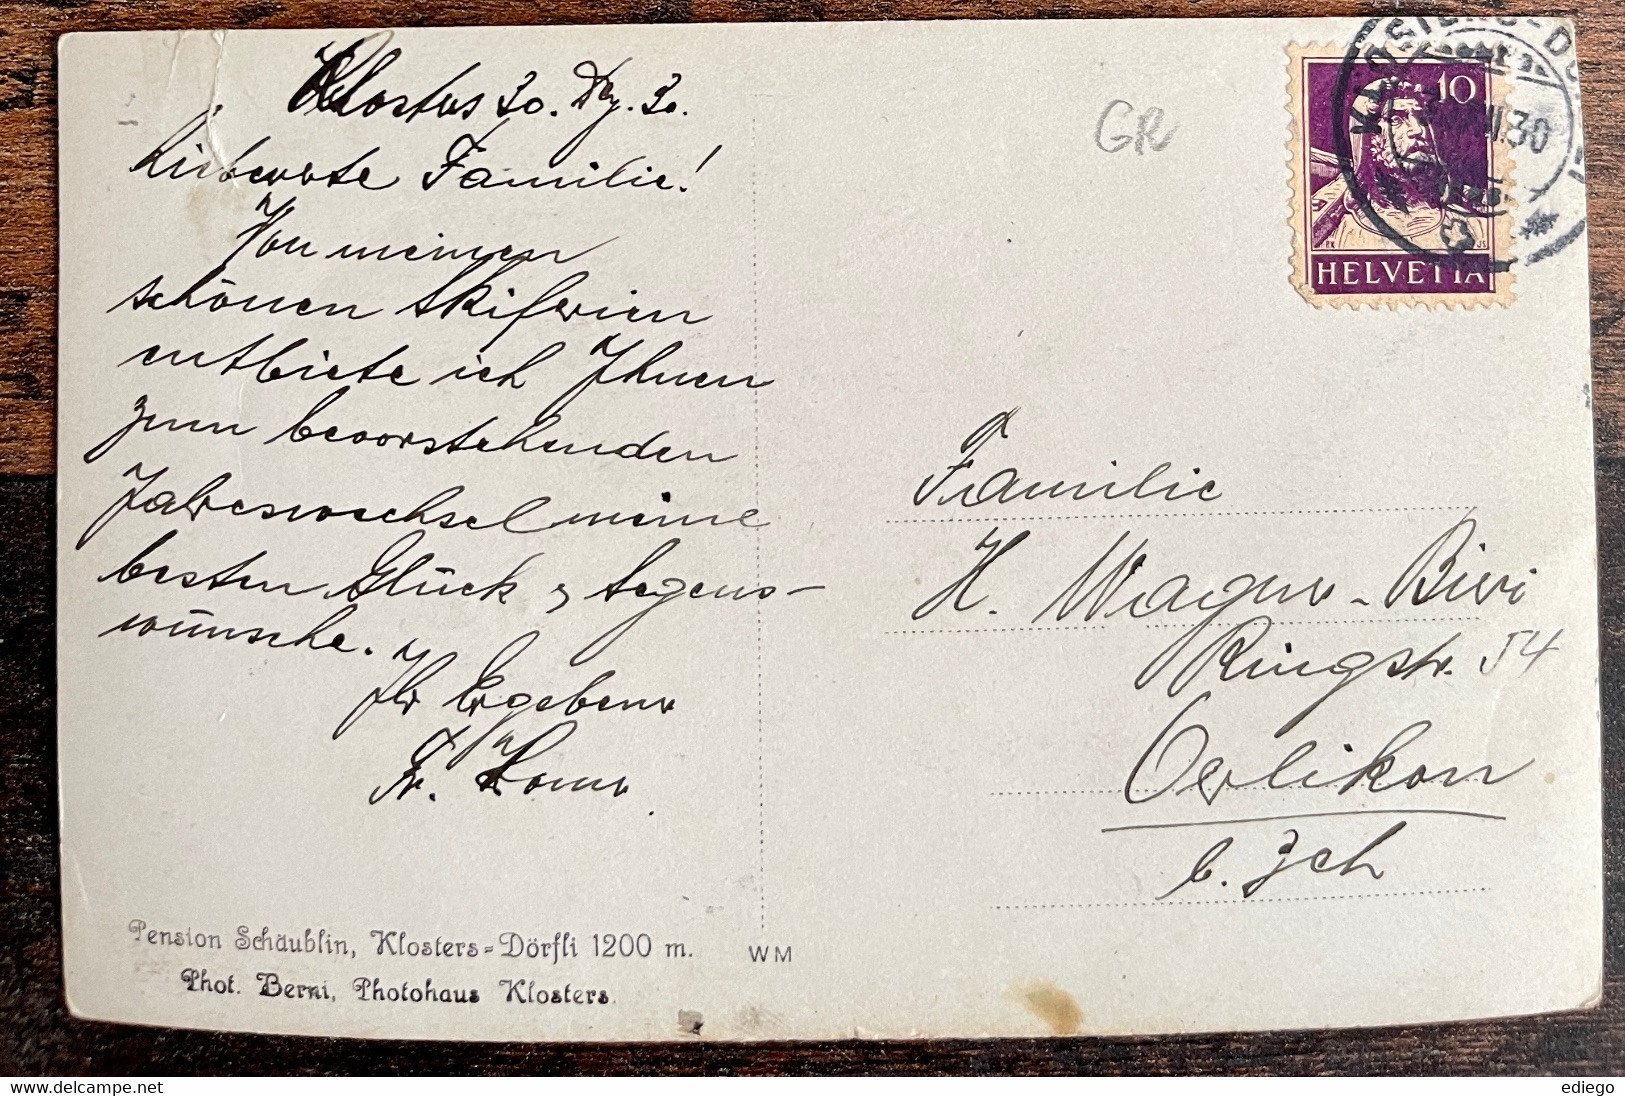 Klosters 30. Dez. 30.
Liebwerte Familie!
Von meinen
schönen Skiferien
entbiete ich Ihnen
zum bevorstehenden
Jahreswechsel meine
besten Glück & Segens-
wünsche.
Ihr Ergebener
Fr.
GR
10
HELVETIA
KLOSTERS-DÖRFLI
30
Familie
H. Wagner-Bieri
Ringstr. 54
Oerlikon
b. Zch
Pension Schäublin, Klosters-Dörfli 1200 m.
WM
Phot. Berni, Photohaus Klosters.
ediego